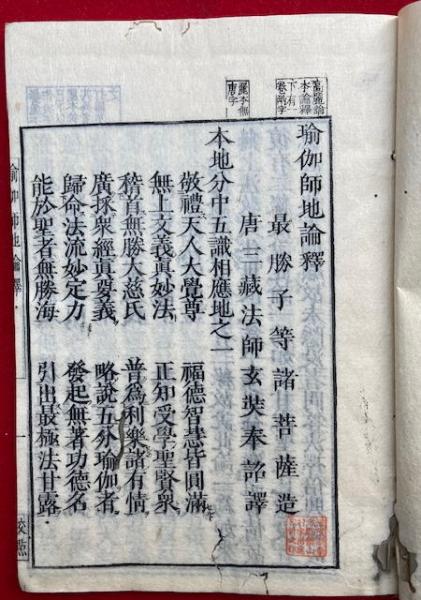 下有一
麗李無
唐字
瑜伽師地論釋
最勝子等諸菩薩造
唐三藏法師玄奘奉詔譯
本地分中五識相應地之一
敬禮天人大覺尊 福德智慧皆圓滿
無上文義眞妙法 正知受學聖賢衆
稽首無勝大慈氏 普爲利樂諸有情
廣採衆經眞要義 略說五分瑜伽者
歸命法流妙定力 發起無著功德名
能於聖者無勝海 引出最極法甘露
瑜伽師地論釋
一